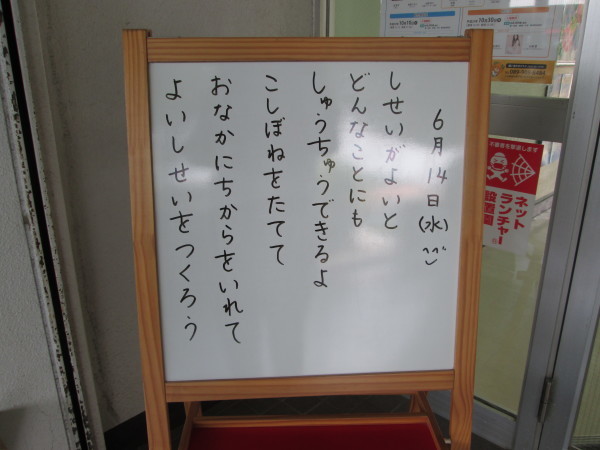 6月14日(水)
しせいがよいと
どんなことにも
しゅうちゅうできるよ
こしぼねをたてて
おなかにちからをいれて
よいしせいをつくろう
ネット
ランチャー
設置園